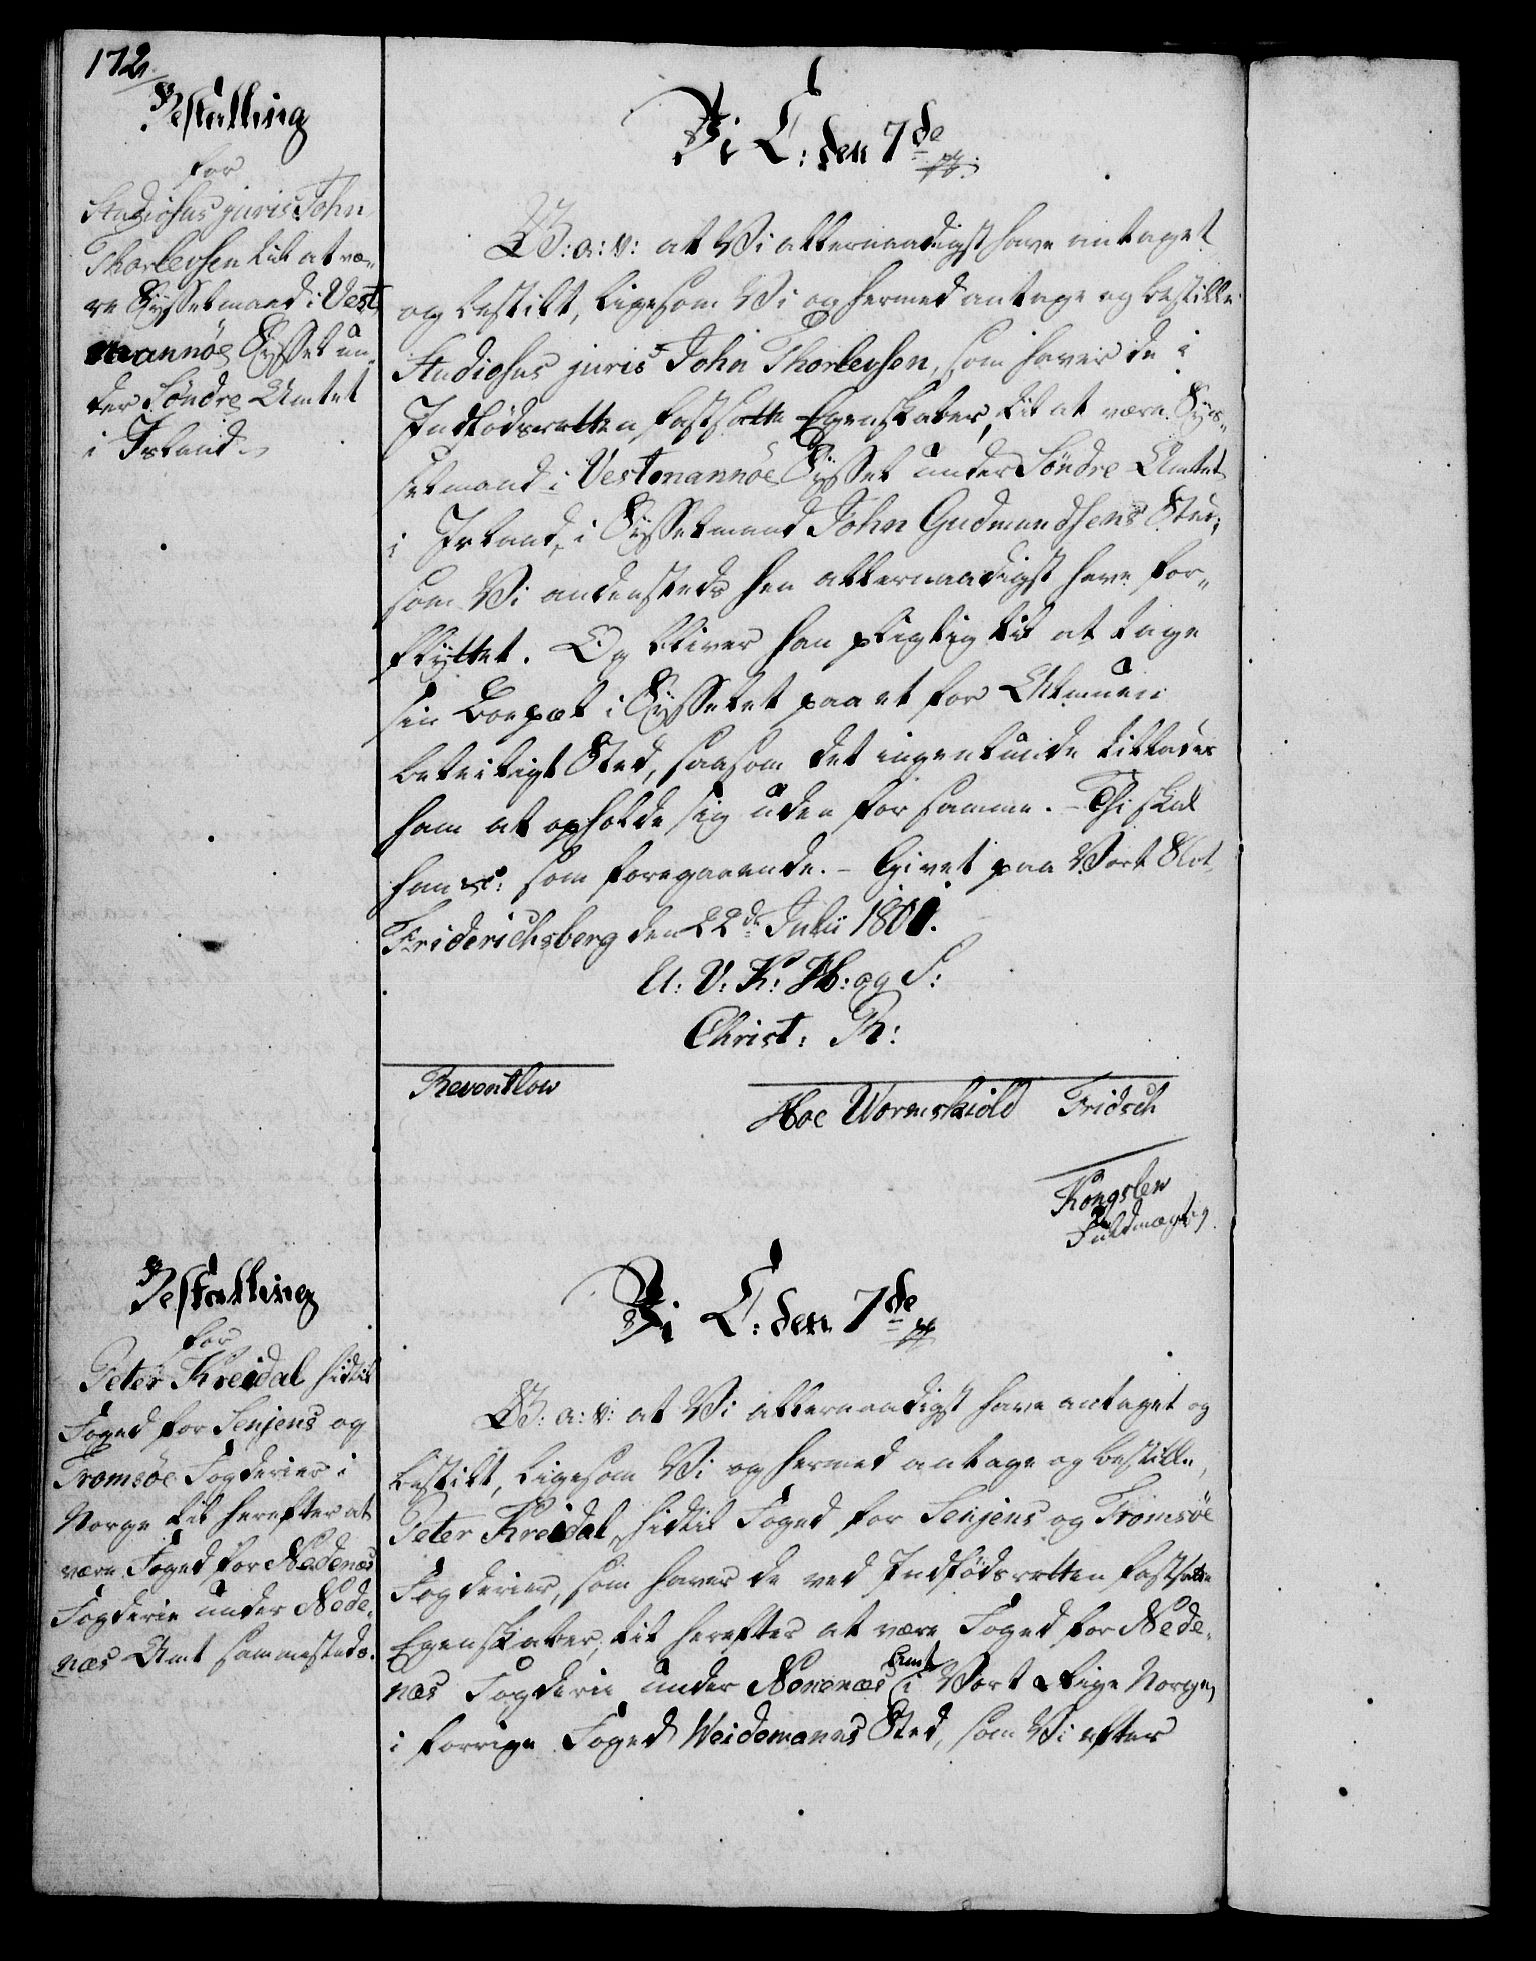 172.
Bestalling
for
Studiosus juris John
Thorlevsen til at væ-
re Sysselmand i Vest
mannöe Syssel un-
der Söndre Amtet
i Island.
Vi C: den 7de pp.
G: a: v: at Vi allernaadigst have antaget
og bestilt, ligesom Vi og hermed antage og bestille
Studiosus juris John Thorlevsen, som haver de i
Indfödsretten fastsatte Egenskaber, til at være Sys-
selmand i Vestmannöe Syssel under Söndre Amtet
i Island, i Sysselmand John Gudmundsens Sted,
som Vi andensteds hen allernaadigst have for-
flyttet. Og bliver han pligtig til at tage
sin Boepæl i Sysselet paa et for Almuen
beleiligt Sted, saasom det ingenlunde tillades
ham at opholde sig uden for samme. - Thi skal
han &c: som foregaaende. - Givet paa Vort Slot
Friderichsberg den 22de Julii 1801.
U: V: K: H: og S:
Christ: R:
Reventlow
Hoe Wormskiold Fridsch
Kongslew
Fuldmægtig.
Bestalling
for
Peter Kreidal hidtil
Foged for Senjens og
Tromsöe Fogderier i
Norge til herefter at
være Foged for Nedenæs
Fogderie under Nede-
næs Amt sammesteds.
Vi C: den 7de pp
G: a: v: at Vi allernaadigst have antaget og
bestilt, ligesom Vi og hermed antage og bestille,
Peter Kreidal, hidtil Foged for Senjens og Tromsöe
Fogderier, som haver de ved Indfödsretten fastsatte
Egenskaber, til herefter at være Foged for Nede-
næs Fogderie under Nenenæs Amt i Vort Rige Norge,
i forrige Foged Weidemanns Sted, som Vi efter